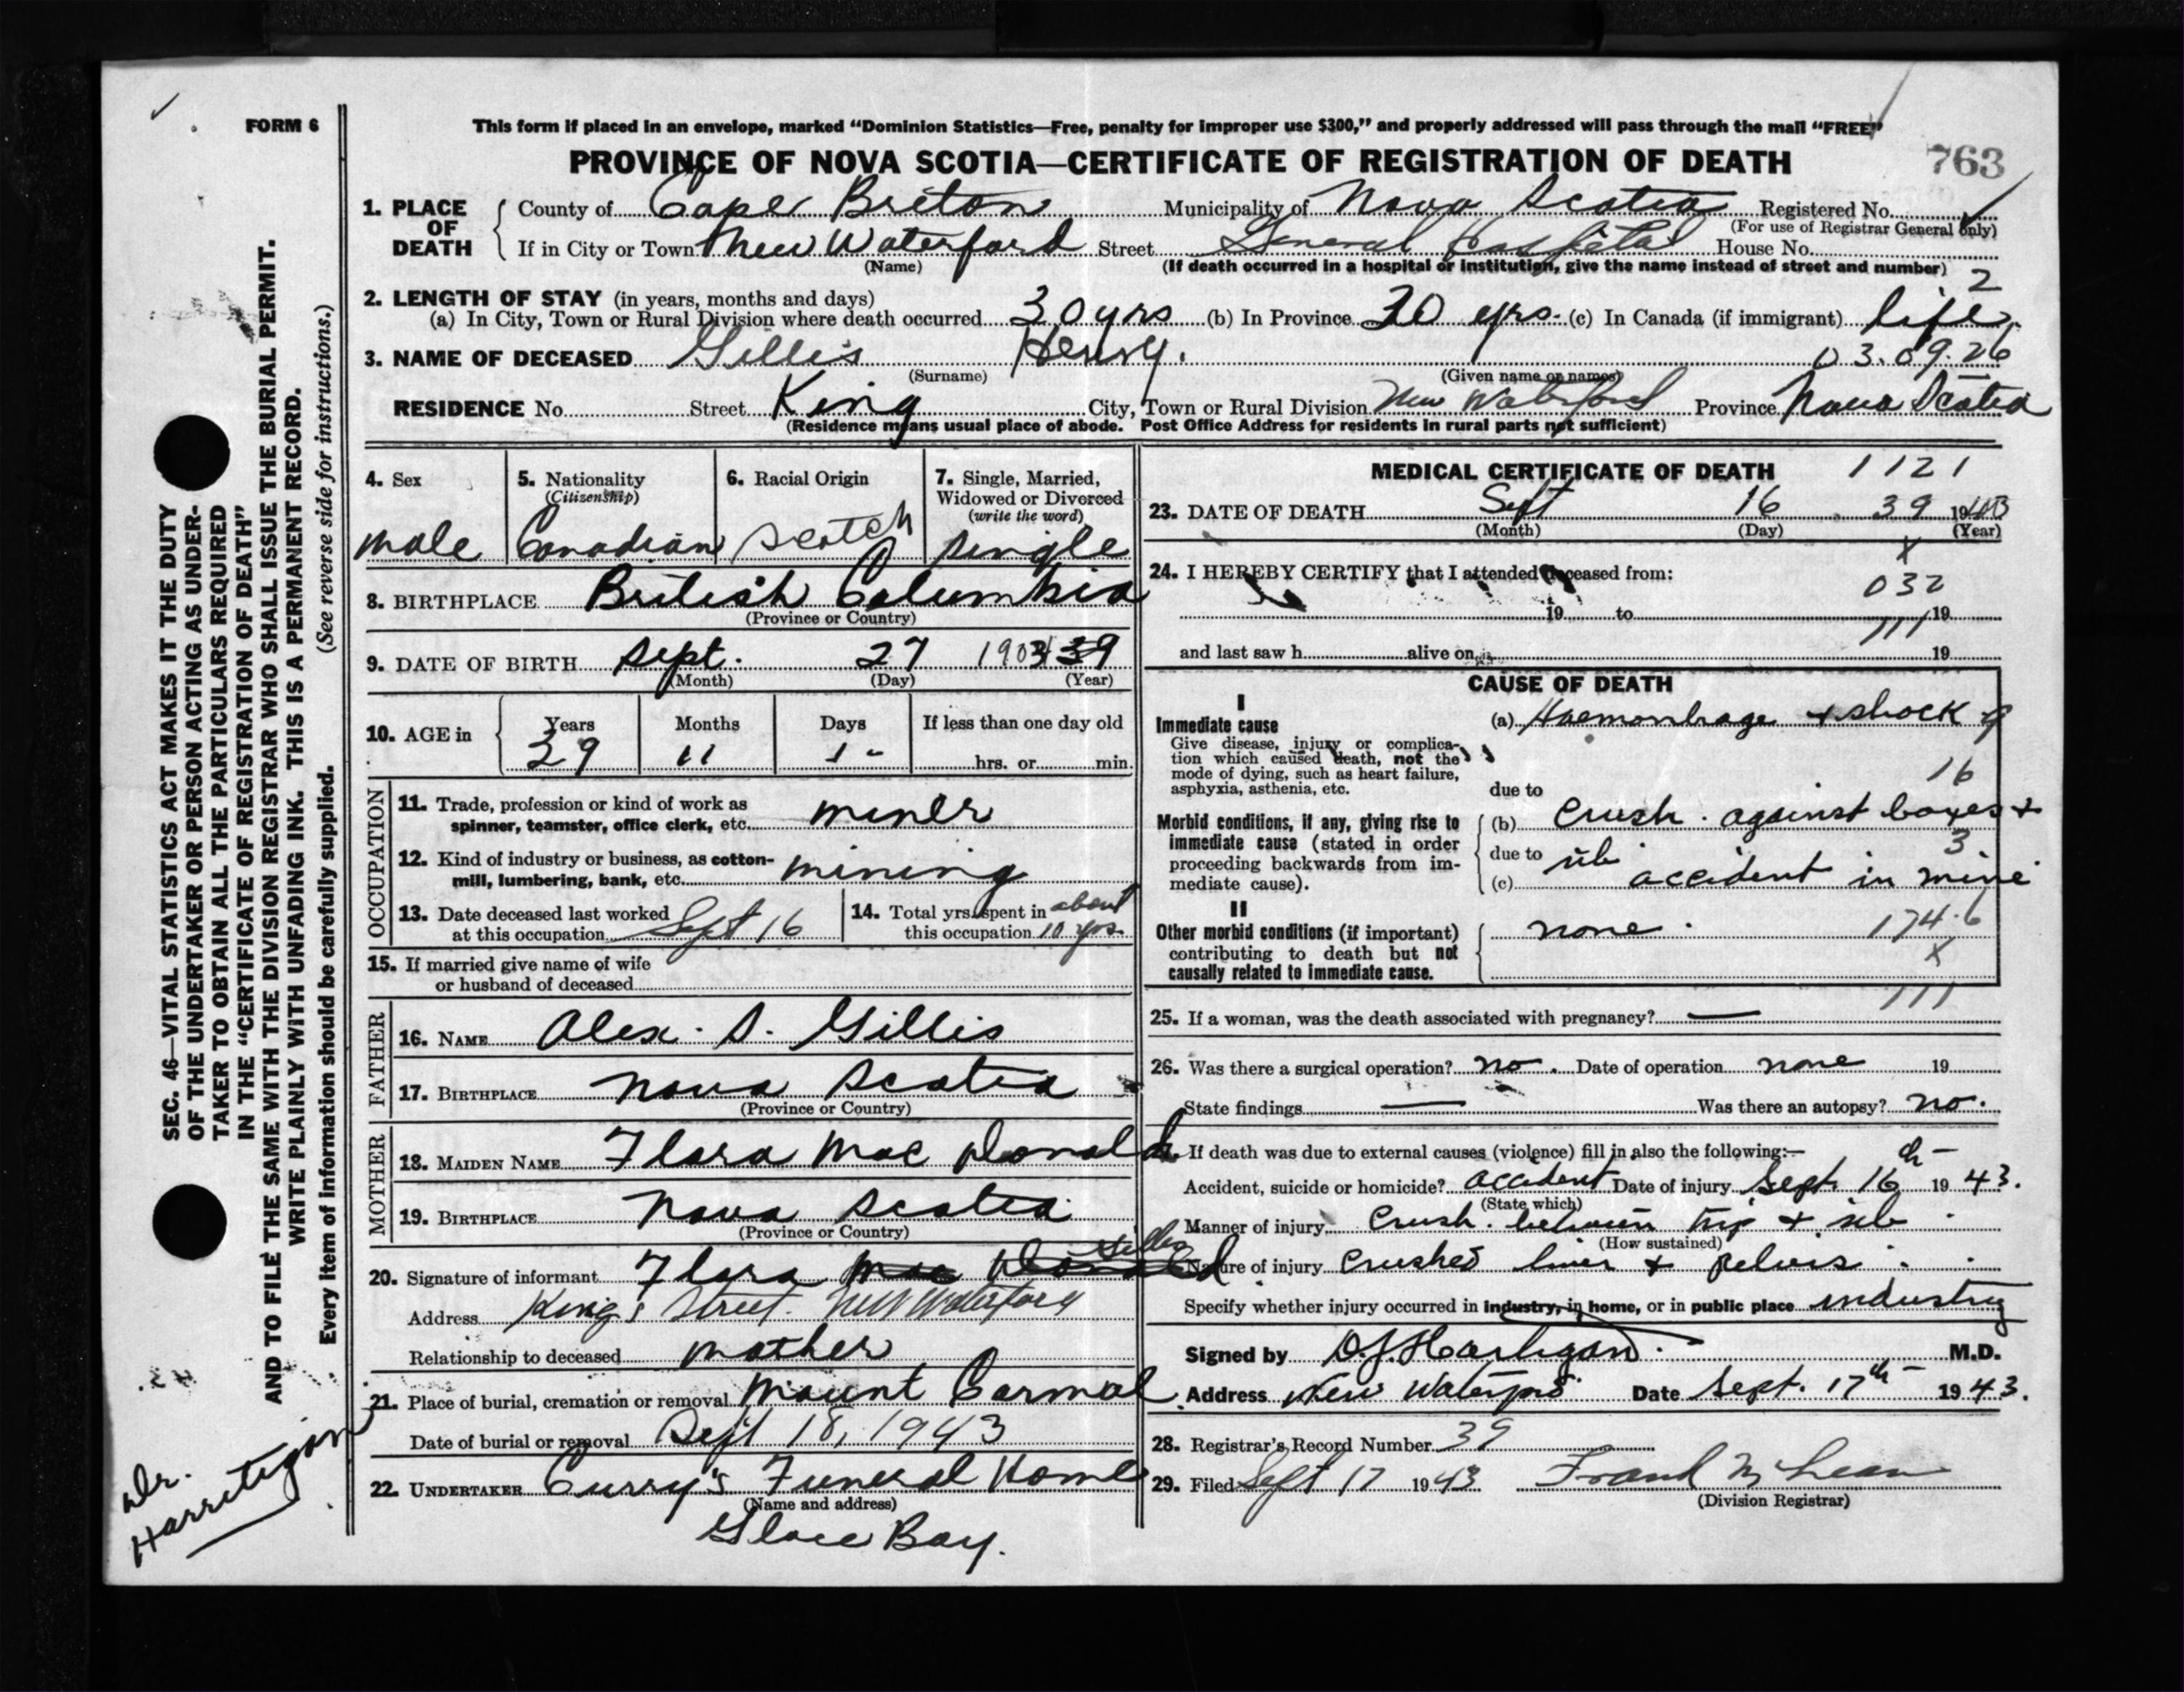 FORM 6
This form if placed in an envelope, marked “Dominion Statistics—Free, penalty for improper use $300,” and properly addressed will pass through the mail “FREE”
PROVINCE OF NOVA SCOTIA—CERTIFICATE OF REGISTRATION OF DEATH
763
1. PLACE OF DEATH
County of Cape Breton Municipality of Nova Scotia Registered No.
(For use of Registrar General only)
If in City or Town New Waterford Street General Hospital House No.
(Name) (If death occurred in a hospital or institution, give the name instead of street and number)
2
2. LENGTH OF STAY (in years, months and days)
(a) In City, Town or Rural Division where death occurred 30 yrs (b) In Province 30 yrs. (c) In Canada (if immigrant) life.
3. NAME OF DECEASED Gillis Henry. 03.09.26
(Surname) (Given name or names)
RESIDENCE No. Street King City, Town or Rural Division New Waterford Province Nova Scotia
(Residence means usual place of abode. Post Office Address for residents in rural parts not sufficient)
4. Sex
male
5. Nationality
(Citizenship)
Canadian
6. Racial Origin
Scotch
7. Single, Married,
Widowed or Divorced
(write the word)
single
8. BIRTHPLACE British Columbia
(Province or Country)
9. DATE OF BIRTH Sept. 27 1903 39
(Month) (Day) (Year)
10. AGE in
Years Months Days If less than one day old
39 11 1- hrs. or min.
OCCUPATION
11. Trade, profession or kind of work as
spinner, teamster, office clerk, etc. miner
12. Kind of industry or business, as cotton-
mill, lumbering, bank, etc. mining
13. Date deceased last worked
at this occupation Sept 16
14. Total yrs. spent in about
this occupation 10 yrs.
15. If married give name of wife
or husband of deceased
FATHER
16. NAME Alex. D. Gillis
17. BIRTHPLACE Nova Scotia
(Province or Country)
MOTHER
18. MAIDEN NAME Flora Mac Donald
19. BIRTHPLACE Nova Scotia
(Province or Country)
Gillis
20. Signature of informant Flora Mac Donald
Address King's Street. New Waterford
Relationship to deceased mother
21. Place of burial, cremation or removal Mount Carmel
Date of burial or removal Sept 18, 1943
22. UNDERTAKER Curry's Funeral Home
(Name and address)
Glace Bay.
MEDICAL CERTIFICATE OF DEATH 1121
23. DATE OF DEATH Sept 16 39 1943
(Month) (Day) (Year)
X
24. I HEREBY CERTIFY that I attended deceased from:
032
19 to 19
111
and last saw h alive on 19
CAUSE OF DEATH
I
Immediate cause
Give disease, injury or complica-
tion which caused death, not the
mode of dying, such as heart failure,
asphyxia, asthenia, etc.
(a) Haemorrhage & shock
16
due to
Morbid conditions, if any, giving rise to
immediate cause (stated in order
proceeding backwards from im-
mediate cause).
(b) crush. against boxes &
3
due to rib
(c) accident in mine
II
Other morbid conditions (if important)
contributing to death but not
causally related to immediate cause.
none. 174.6
X
111
25. If a woman, was the death associated with pregnancy? —
26. Was there a surgical operation? no. Date of operation none 19
State findings — Was there an autopsy? no.
If death was due to external causes (violence) fill in also the following:—
Accident, suicide or homicide? accident Date of injury Sept. 16th 1943.
(State which)
Manner of injury crush. between trip & rib
(How sustained)
Nature of injury crushed liver & pelvis.
Specify whether injury occurred in industry, in home, or in public place industry
Signed by D.J. Hartigan. M.D.
Address New Waterford Date Sept. 17th 1943.
28. Registrar's Record Number 39
29. Filed Sept 17 1943 Frank McLean
(Division Registrar)
SEC. 46—VITAL STATISTICS ACT MAKES IT THE DUTY
OF THE UNDERTAKER OR PERSON ACTING AS UNDER-
TAKER TO OBTAIN ALL THE PARTICULARS REQUIRED
IN THE “CERTIFICATE OF REGISTRATION OF DEATH”
AND TO FILE THE SAME WITH THE DIVISION REGISTRAR WHO SHALL ISSUE THE BURIAL PERMIT.
WRITE PLAINLY WITH UNFADING INK. THIS IS A PERMANENT RECORD.
Every item of information should be carefully supplied. (See reverse side for instructions.)
Dr.
Harretigan